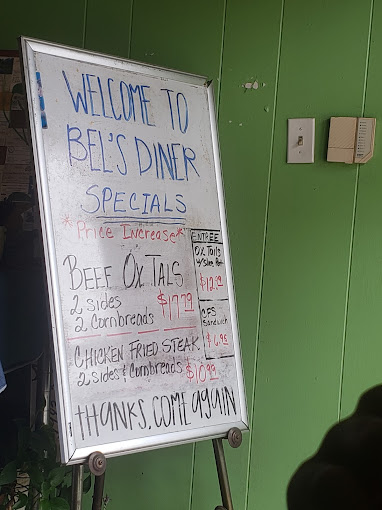 WELCOME TO
BEL'S DINER
SPECIALS
*Price Increase*
BEEF OX TAILS
2 sides
2 Cornbreads $17.79
CHICKEN FRIED STEAK
2 sides & Cornbreads $10.99
ENTREE
OX Tails
$12.
CFS
Sandwich
$6.95
THANKS, COME AGAIN